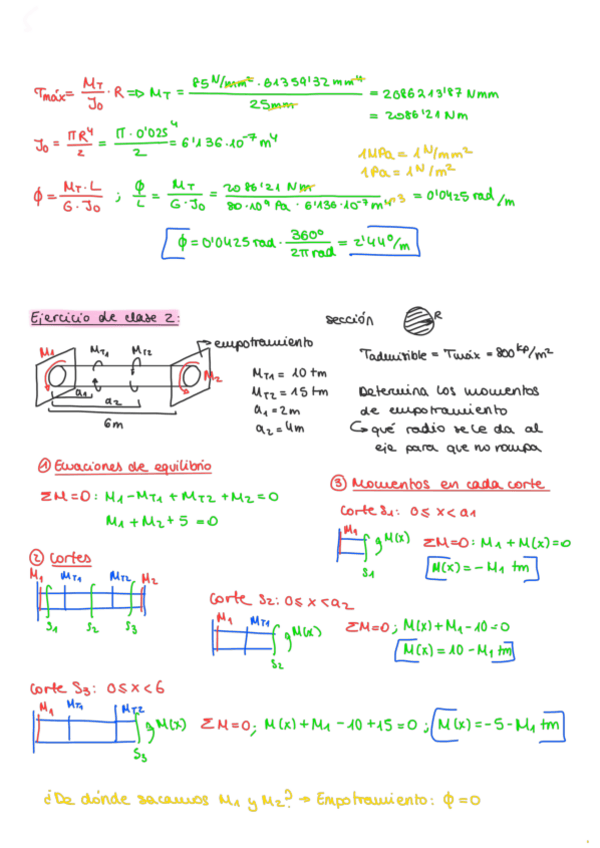 τmáx = MT/J0 · R ⇒ MT = 85 N/mm² · 61359'32 mm⁴ / 25mm = 2086213'87 Nmm
= 2086'21 Nm
J0 = πR⁴/2 = π · 0'025⁴/2 = 6'136·10⁻⁷ m⁴
1MPa = 1 N/mm²
1Pa = 1 N/m²
ϕ = MT · L / G · J0 ; ϕ/L = MT / G · J0 = 2086'21 Nm / 80·10⁹ Pa · 6'136·10⁻⁷ m⁴ ³ = 0'0425 rad/m
ϕ = 0'0425 rad · 360º / 2π rad = 2'44º/m
Ejercicio de clase 2:
sección
R
empotramiento
M1 MT1 MT2 M2
a1
a2
6m
MT1 = 10 tm
MT2 = 15 tm
a1 = 2m
a2 = 4m
Tadmisible = Tmáx = 800 kp/m²
Determina los momentos
de empotramiento
↳ qué radio se le da al
eje para que no rompa
① Ecuaciones de equilibrio
ΣM=0: M1 - MT1 + MT2 + M2 = 0
M1 + M2 + 5 = 0
② Cortes
M1 MT1 MT2 M2
S1 S2 S3
③ Momentos en cada corte
Corte S1: 0 ≤ x < a1
M1 M(x) ΣM=0: M1 + M(x) = 0
S1
M(x) = - M1 tm
Corte S2: 0 ≤ x < a2
M1 MT1 M(x) ΣM=0; M(x) + M1 - 10 = 0
S2
M(x) = 10 - M1 tm
Corte S3: 0 ≤ x < 6
M1 MT1 MT2 M(x) ΣM=0; M(x) + M1 - 10 + 15 = 0; M(x) = -5 - M1 tm
S3
¿De dónde sacamos M1 y M2? → Empotramiento: ϕ = 0